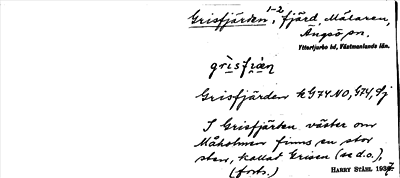 Grisfjärden 1-2, fjärd, Mälaren,
Ängsö sn.
Yttertjurbo hd, Västmanlands län.
grìsfjæ̀ṇ
Grisfjärden kG74NO, G74, Sj
I Grisfjärden väster om
Måholmen finns en stor
sten, kallat Grisen (se d.o.),
(forts.) HARRY STÅHL 1937